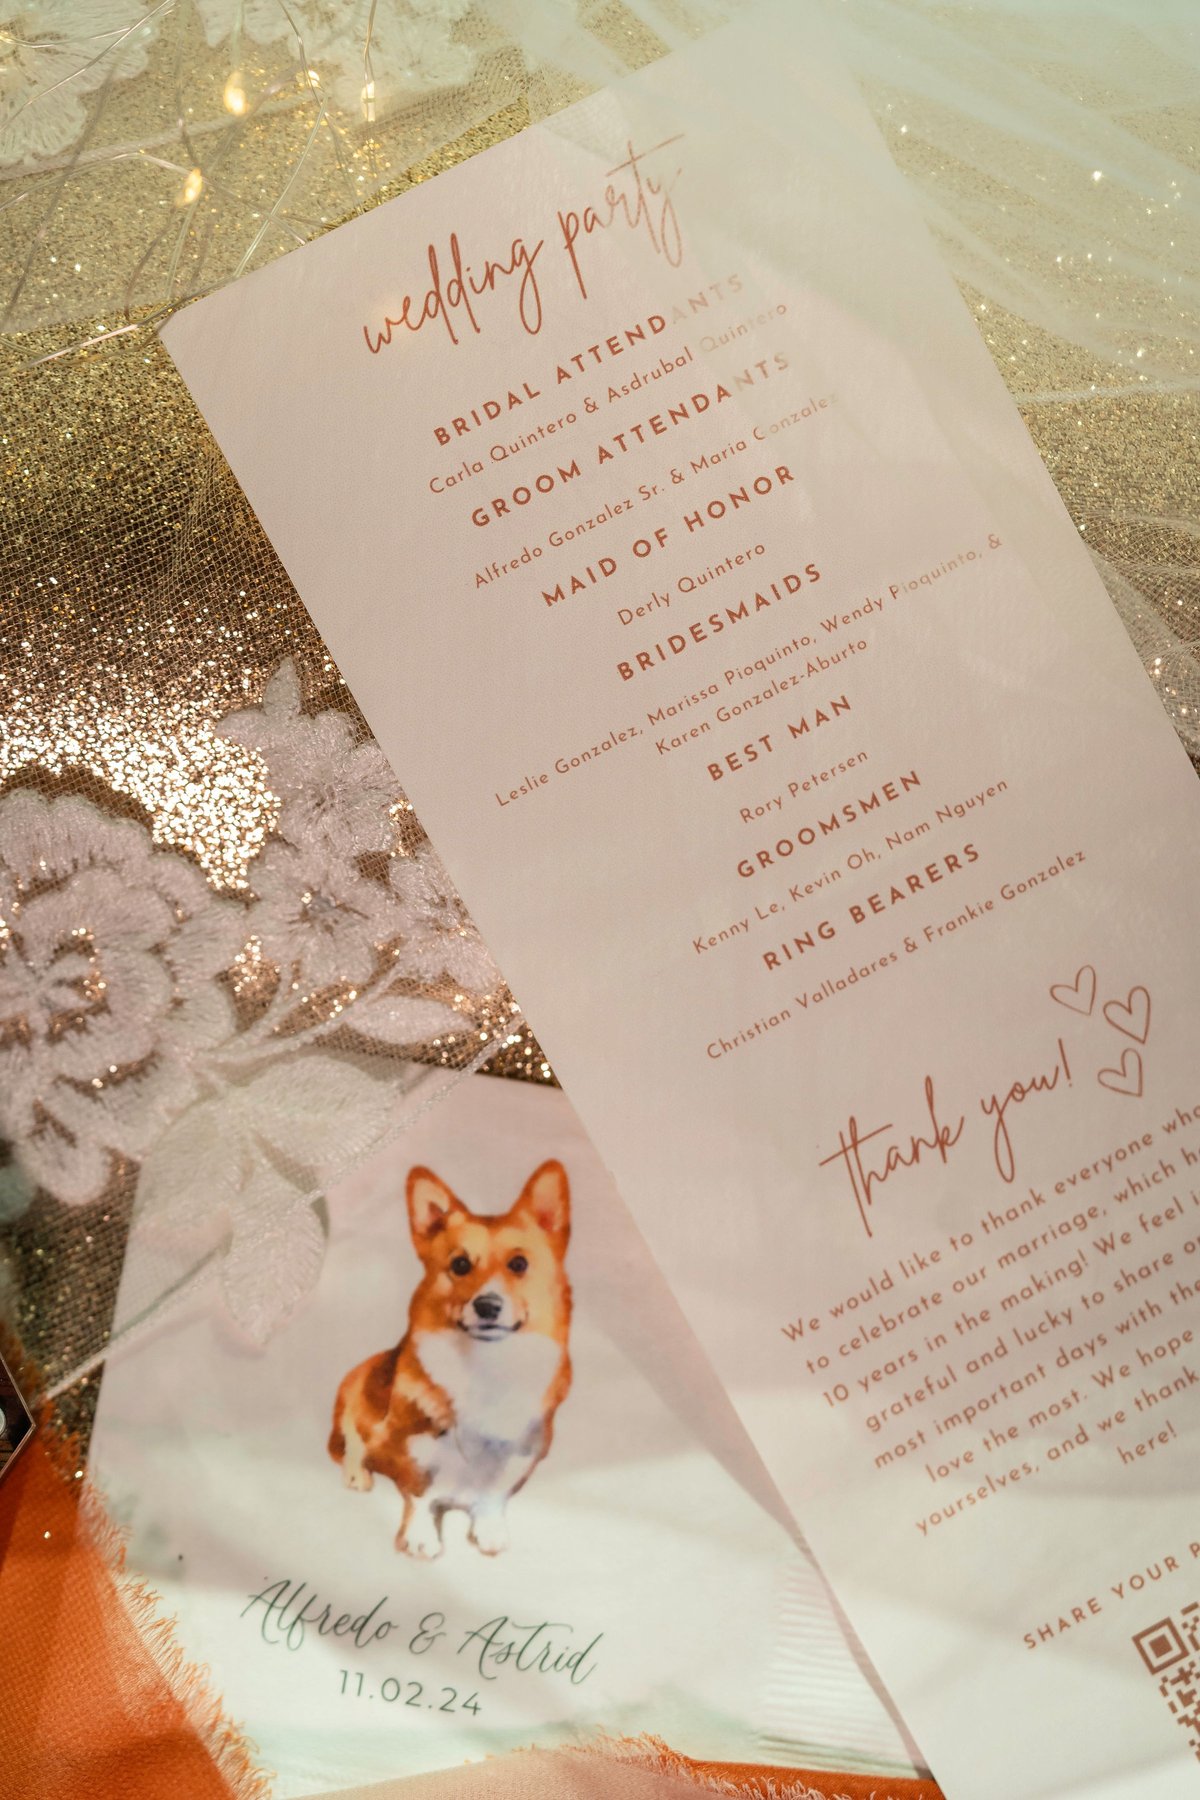 wedding party
BRIDAL ATTENDANTS
Carla Quintero & Asdrubal Quintero
GROOM ATTENDANTS
Alfredo Gonzalez Sr. & Maria Gonzalez
MAID OF HONOR
Derly Quintero
BRIDESMAIDS
Leslie Gonzalez, Marissa Pioquinto, Wendy Pioquinto, &
Karen Gonzalez-Aburto
BEST MAN
Rory Petersen
GROOMSMEN
Kenny Le, Kevin Oh, Nam Nguyen
RING BEARERS
Christian Valladares & Frankie Gonzalez
thank you!
We would like to thank everyone who
to celebrate our marriage, which
10 years in the making! We feel
grateful and lucky to share
most important days with the
love the most. We hope
yourselves, and we thank
here!
SHARE YOUR
Alfredo & Astrid
11.02.24